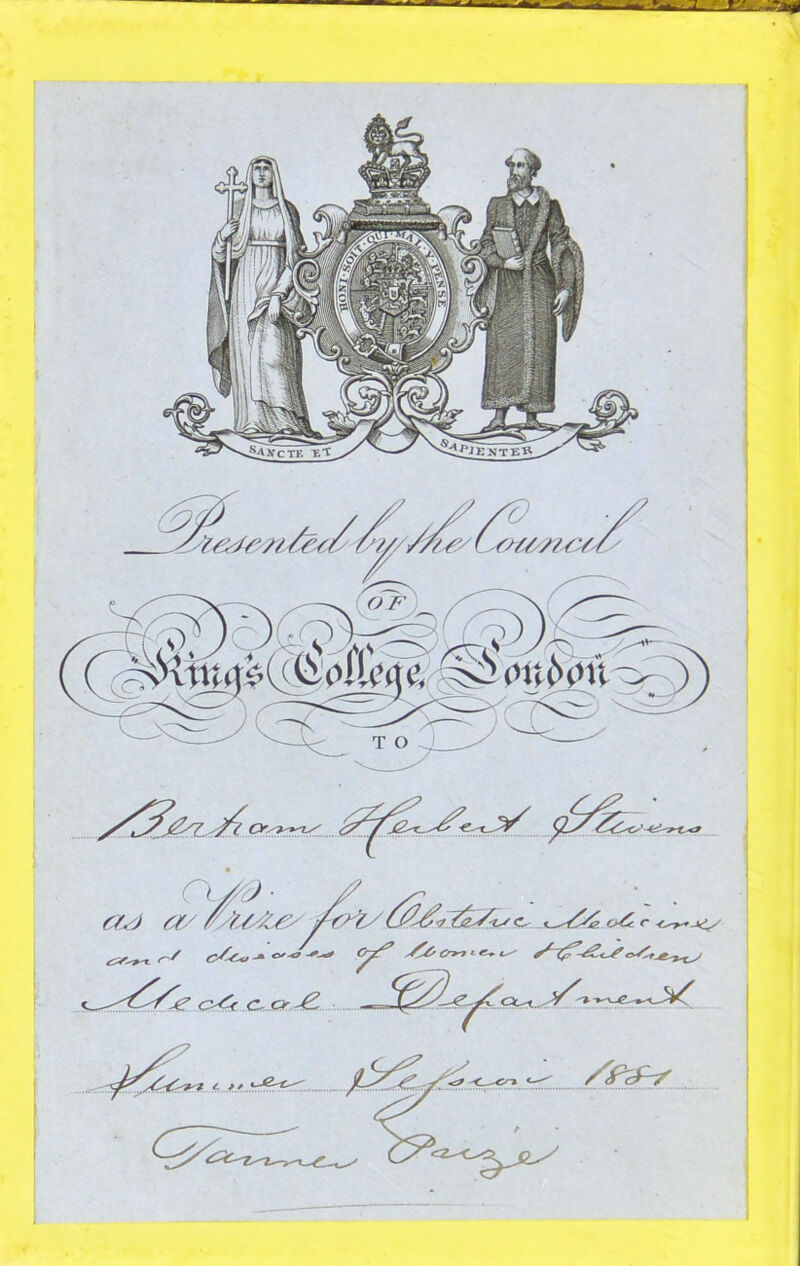 HONI·SOIT·QUI·MAL·Y·PENSE
SANCTE ET SAPIENTER
Presented by the Council
OF
King's College, London
TO
Bertram Herbert Stivens
as a Prize for Obstetric Medicine
and diseases of Women & Children
Medical Department
Summer Session 1881
Tanner Prize